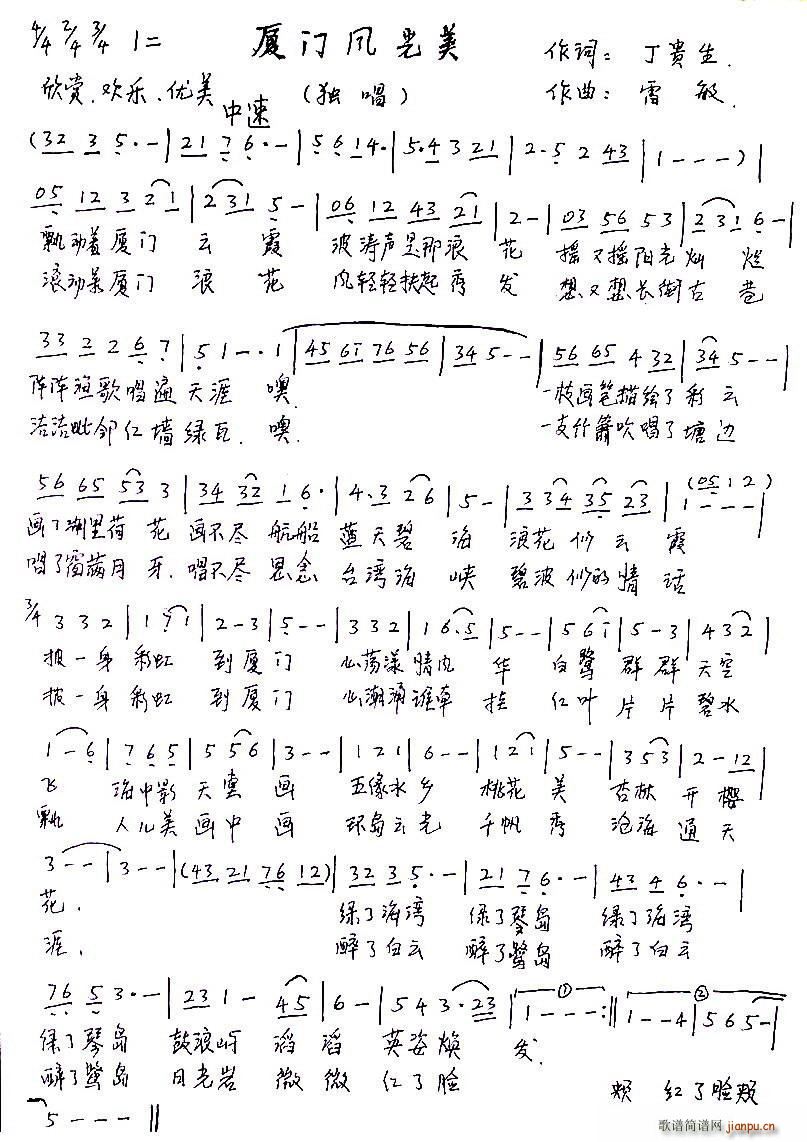 4/4 2/4 3/4 1= 厦门风光美 作词: 丁贵生.
欣赏.欢乐.优美 中速 (独唱) 作曲: 雷敏.
(32 3 5·-|21 7 6·-|5 6 14·|5·4 3 21|2·5 2 43|1---)|
05 12 3 2 1|231 5-|06 12 43 21|2-|03 56 53|231 6-|
飘动着厦门 云 霞 波涛声是那浪 花 摇又摇阳光灿 烂
滚动着厦门 浪 花 风轻轻扶起秀 发 想又想长街古 巷
33 2 2 6 7|5 1--·1|45 61 76 56|34 5--|56 65 4 32|34 5--|
阵阵渔歌唱遍 天涯 噢. 一枝画笔描绘了 彩 云
洁洁毗邻红墙绿瓦. 噢. 一支竹箫吹唱了 塘 边
56 65 53 3|34 32 1 6·|4·3 2 6|5-|3 34 35 23|1---| (05 12)
画了湖里荷 花 画不尽 航船 蓝天碧 海 浪花 似 云 霞
唱了窗满月 牙. 唱不尽 思念 台湾海 峡 碧波 似的 情 话
3/4 3 3 2|1 71|2-3|5--|3 3 2|1 6·5|5--|5 61|5-3|4 32|
披一身 彩虹 到厦门 心荡漾 情内 华 白鹭 群 群 天空
披一身 彩虹 到厦门 心潮涌 谁牵 挂 红叶 片 片 碧水
1-6|7 6 5|5 56|3--|1 2 1|6--|1 21|5--|3 53|2-12|
飞 海中影 天 画 五缘水 乡 桃花 美 杏林 开 樱
飘 人儿美 画中 画 环岛云 光 千帆 秀 沧海 通 天
3--|3--|(43 21 76 12)|32 3 5·-|21 7 6·-|43 4 6·-|
花. 绿了海湾 绿了琴岛 绿了海湾
涯. 醉了白云 醉了鹭岛 醉了白云
76 5 3·-|23 1- 45|6-|5 4 3·23|① 1---:|② 1--4|5 6 5-|
绿了琴岛 鼓浪屿 滔 滔 英姿焕 发.
醉了鹭岛 日光岩 微 微 红了脸 颊 红了脸颊
5---||
歌谱简谱网
jianpu.cn